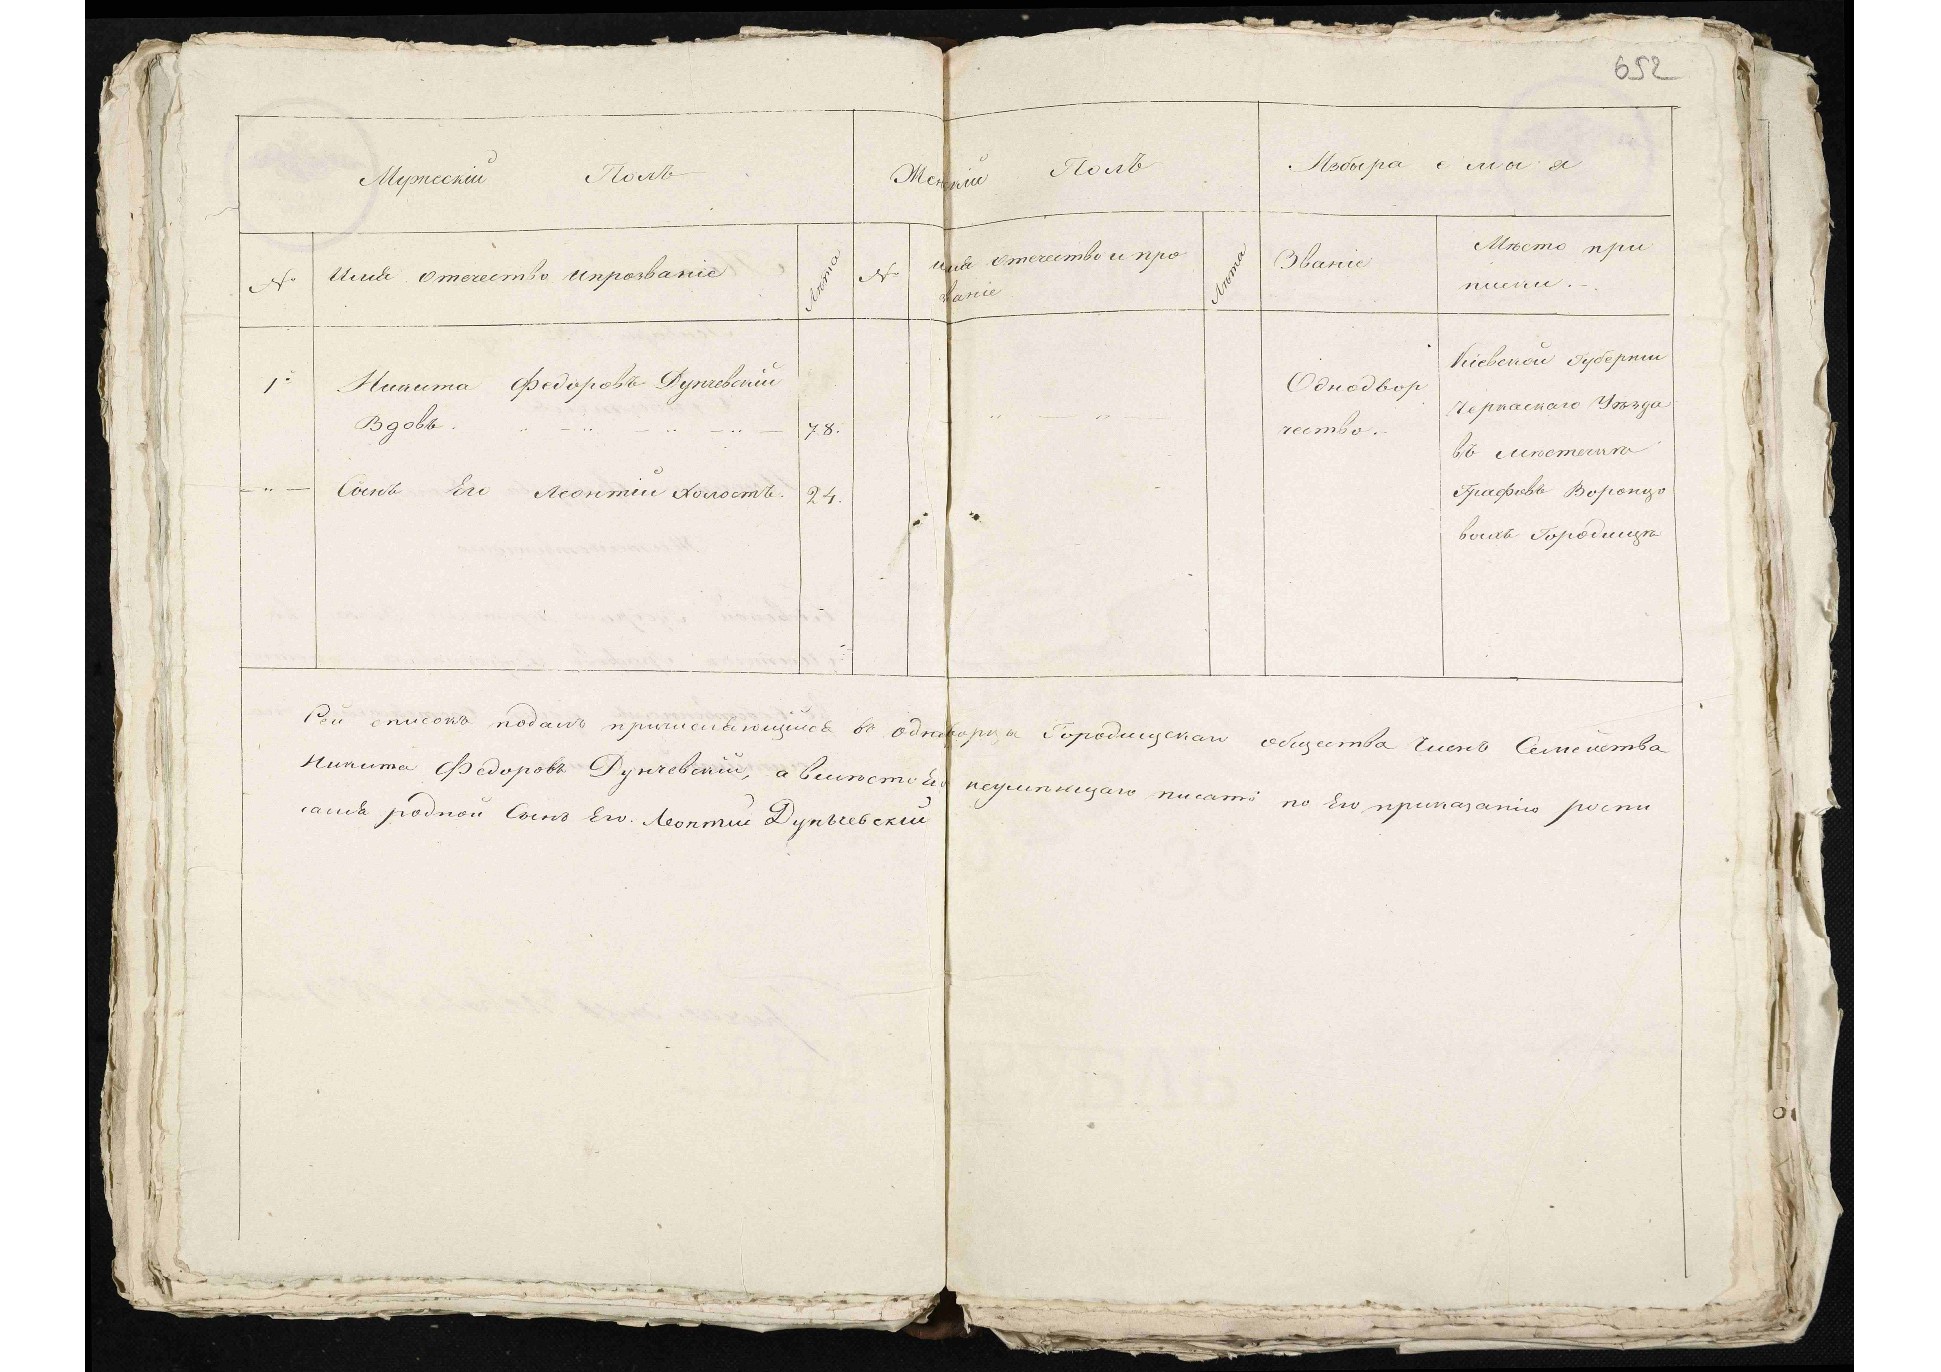 652
Мужескій Полъ
Женкій Полъ
Избыра е мы я
№
Имя отечество ипрозваніе
Лѣта
№
имя отечество и про
званіе
Лѣта
Званіе
Мѣсто при
писки.-.
1й
Никита Федоровъ Дунчевскій
Вдовъ. 78.
Сынъ Его Леонтій холостъ. 24.
Однодвор
чество.-
Кіевской губерніи
Черкаскаго Уѣзда
въ мѣстечкѣ
Графовъ Воронцо
выхъ Городищѣ
Сей списокъ подалъ причисляющійся въ однодворцы Городищскаго общества Членъ Семейства
Никита Федоровъ Дунчевскій, а вмѣсто Его неумѣющаго писать по Его приказанію роспи
сался родной Сынъ Его. Леонтій Дунчевскій